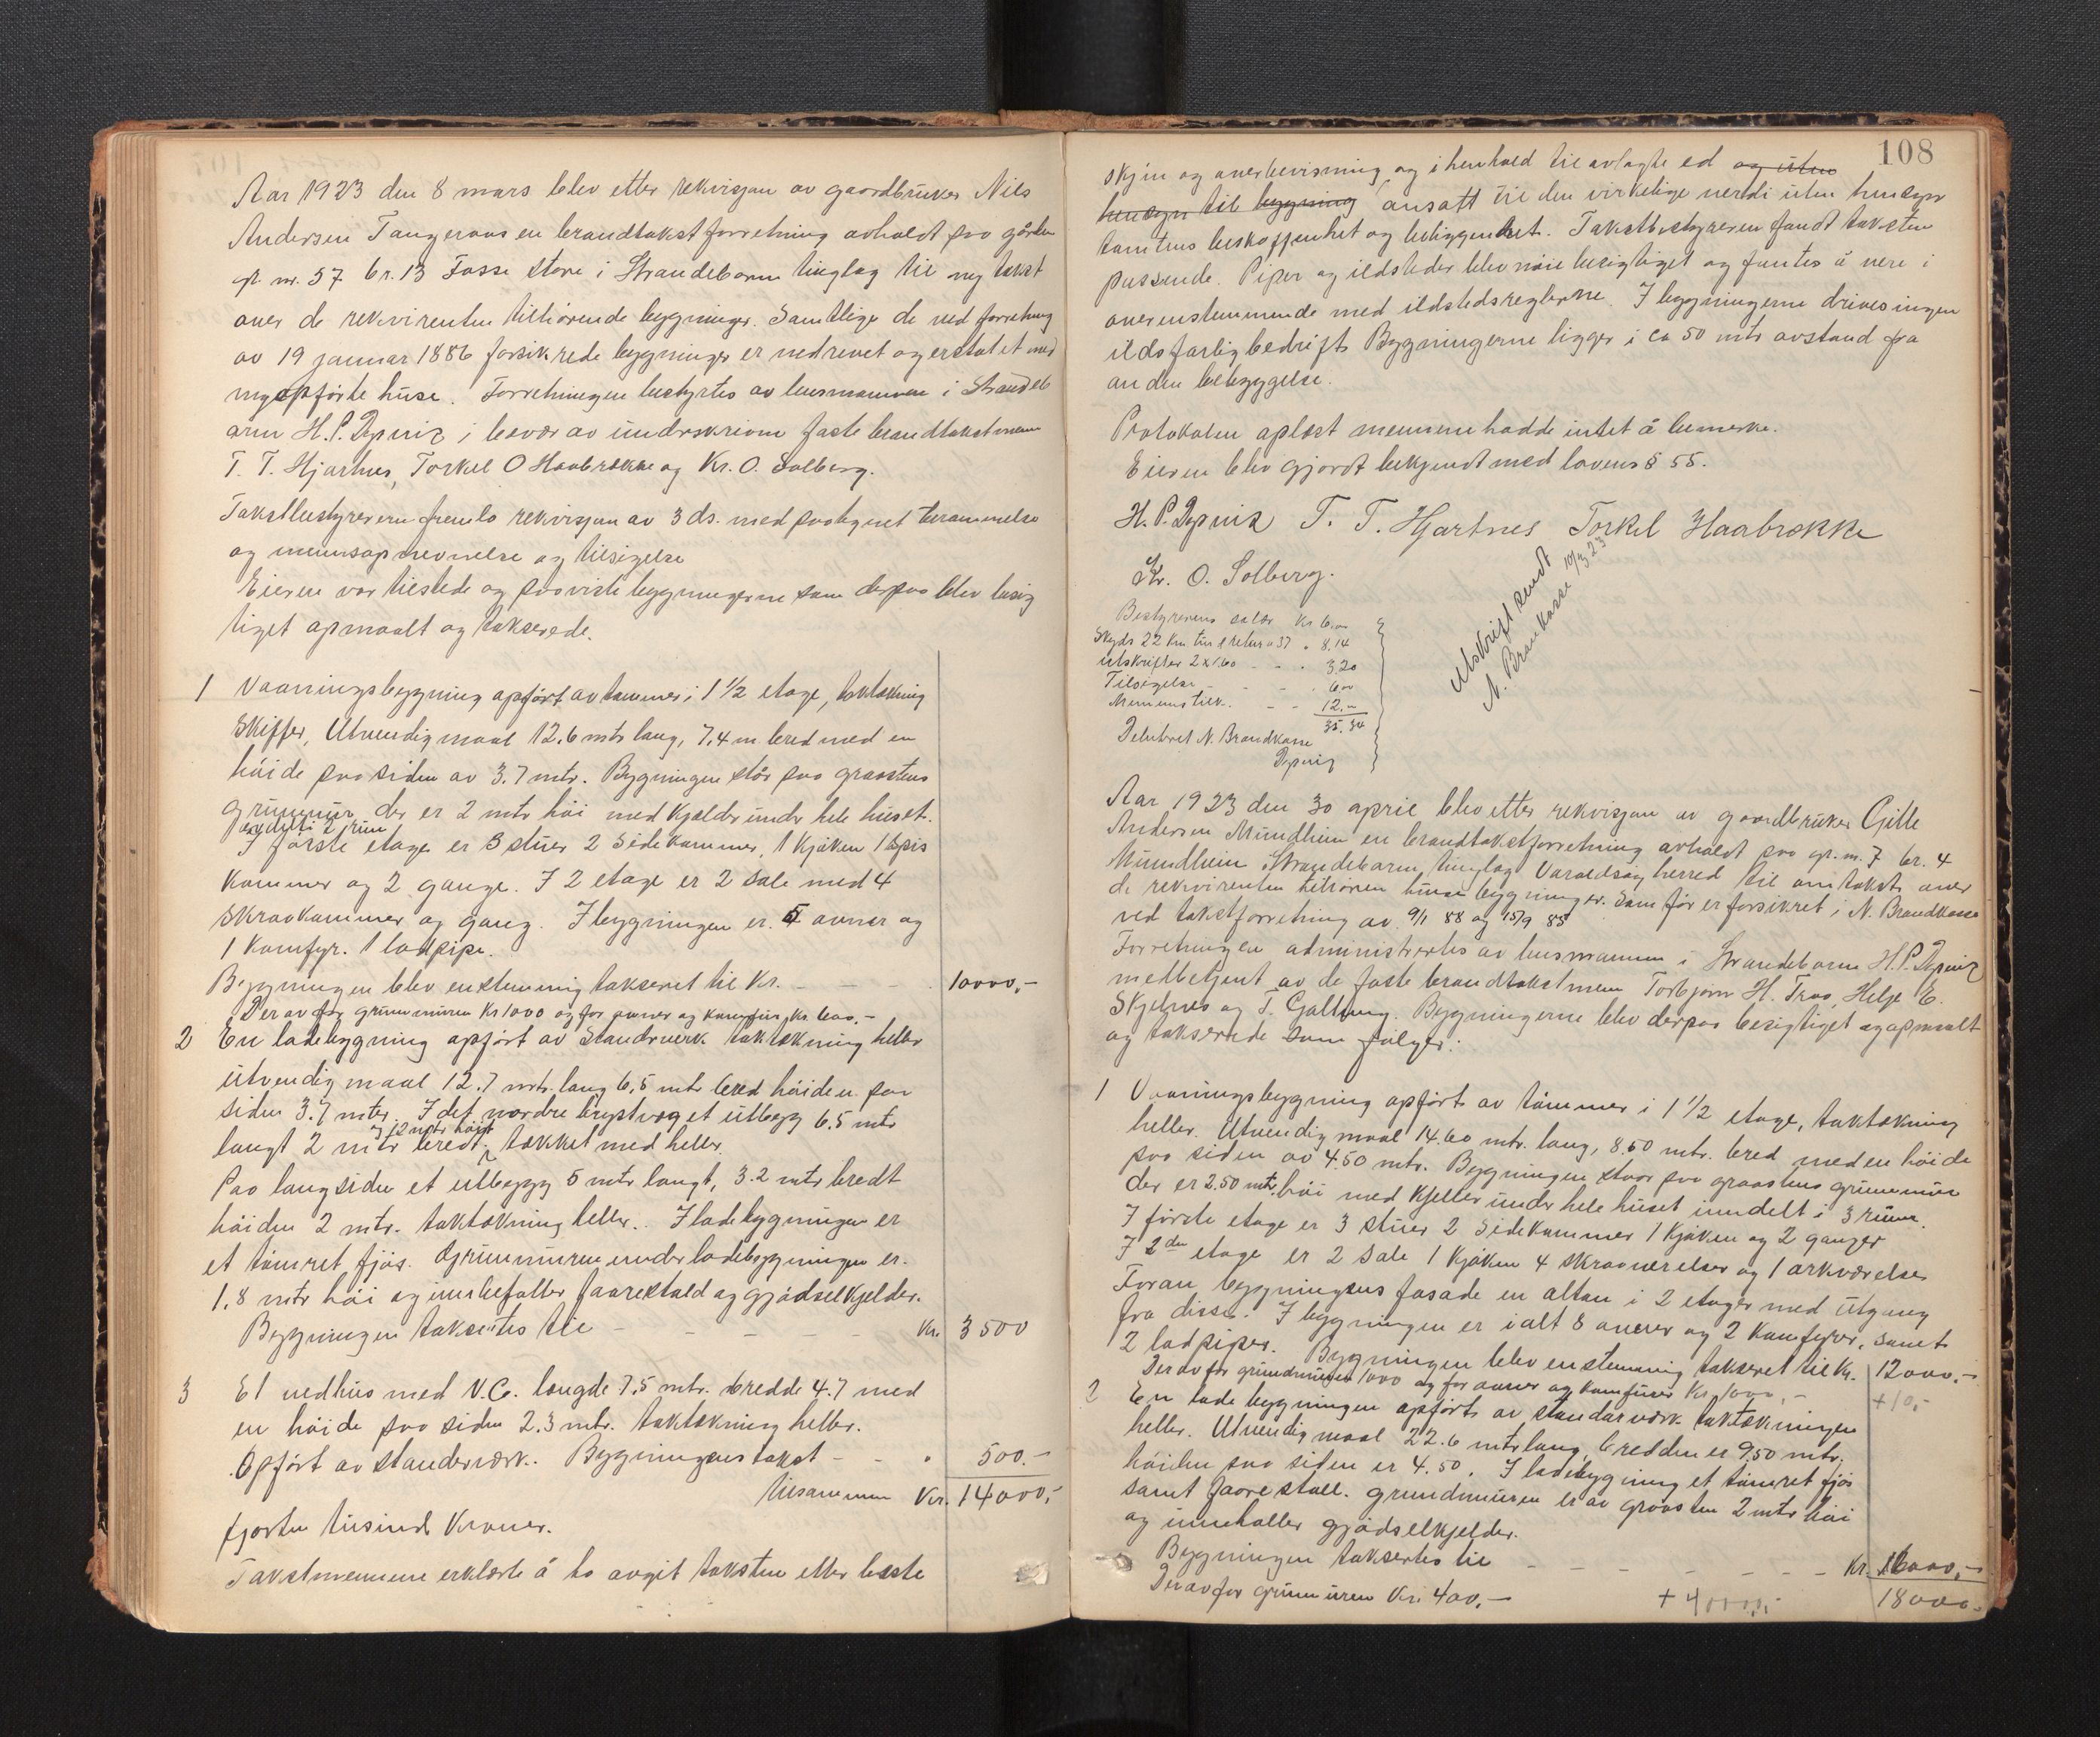 Aar 1923 den 8 mars blev etter rekvisjon av gaardbruker Nils
Andersen Tangeraas en brandtakstforretning avholdt paa gården
gr. nr. 57 br. 13 Fosse store i Strandebarm tinglag til ny takst
over de rekvirenten tilhörende bygninger. Samtlige de ved forretning
av 19 januar 1886 forsikrede bygninger er nedrevet og erstatet med
nyopförte huse. Forretningen bestyrtes av lensmannen i Strandeb
arm H.P. i besvær av underskrivne faste brandtakstmenn
T. T. Hjartnes, Torkel O Haabrekke og Kr. O. Solberg.
Takstbestyreren fremla rekvisjon av 3 ds. med paategnet berammelse
og mennsopnevnelse og tilsigelse
Eieren var tilstede og paaviste bygningerne som derpaa blev besig
tiget opmaalt og takserede.
1 Vaaningsbygning opfört av tömmer i 1 1/2 etage, taktækning
Skiffer, Utvendig maal 12.6 mtr lang, 7,4 m bred med en
höide paa siden av 3.7 mtr. Bygningen står paa graastens
grunnmur der er 2 mtr höi med Kjelder under hele huset.
inndelt i 2 rum
I förste etage er 3 stuer 2 Sidekammer, 1 Kjöken 1 spis
Kammer og 2 gange. I 2 etage er 2 Sale med 4
Skraakammer og gang. I bygningen er 5 ovner og
1 Komfyr. 1 ladpipe.
Bygningen blev enstemmig takseret til Kr. - - - 10000,-
Derav for grunnmuren Kr 1000 og for ovner og Komfur Kr. 600,-
2 En ladebygning opfört av Standverk taktækning heller
utvendig maal 12.7 mtr. lang 6,5 mtr bred höiden paa
siden 3.7 mter. I det nordre brystvæg et utbygg 6.5 mtr
langt 2 mtr bredt, tækket med heller.
og 1,2 mtr höit
Paa langsiden et utbygg 5 mtr langt, 3.2 mtr bredt
höiden 2 mtr. taktækning heller. I ladebygningen er
et tömret fjös. Grunnmuren under ladebygningen er.
1,8 mtr höi og innbefatter faarestald og gjödselkjelder.
Bygningen taksertes til - - - - - Kr. 3500
3 Et vedhus med V.C. længde 7.5 mtr. bredde 4.7 med
en höide paa siden 2.3 mtr. taktækning heller.
Opfört av standerværk. Bygningens takst - - " 500.-
tilsammen Kr. 14000,-
fjorten tusind Kroner.
Takstmennene erklærte å ha avgit taksten etter beste
108
skjön og overbevisning, og i henhold til avlagte ed og uten
hensyn til bygning ansatt til den virkelige verdi uten hensyn
tomtens beskaffenhet og beliggenhet. Takstbestyreren fandt taksten
passende. Piper og ildsteder blev nöie besigtiget og fantes å vere i
overenstemmende med ildstedsreglerne. I bygningerne drives ingen
ildsfarlig bedrift. Bygningerne ligger i ca 50 mtr avstand fra
anden bebyggelse.
Protokolen oplæst mennene hadde intet å bemerke.
Eieren blev gjordt bekjendt med lovens § 55.
H. P. T. T. Hjartnes Torkel Haabrekke
Kr. O. Solberg.
Utskrift sendt
N. Brankasse 10/3 23
Bestyrerens salær Kr 6,00
Skyds 22 Km tur & retur a 37 " 8.14
utskrifter 2 x 1.60 - - " 3.20
Tilsigelse - - - " 6.00
Mennens tilk. - - 12.-
35.34
Debitert N. Brandkasse
Aar 1923 den 30 april blev etter rekvisjon av gaardbruker Gitle
Andersen Mundheim en brandtakstforretning avholdt paa gr. nr. 7 br. 4
Mundheim Strandebarm tinglag Varaldsøy herred til omtakst over
de rekvirenten tilhören huse bygninger. Som för er forsikret i N. Brandkasse
ved takstforretning av 9/1 88 og 15/9 85
Forretningen administrertes av lensmannen i Strandebarm H.P.
medbetjent av de faste brandtakstmenn Torbjörn H. Traa, Helje E.
Skjelnes og T. Galtung. Bygningerne blev derpaa besigtiget og opmaalt
og takserede som fölger:
1 Vaaningsbygning opfört av tömmer i 1 1/2 etage, taktækning
heller. Utvendig maal 14.60 mtr. lang, 8.50 mtr. bred med en höide
paa siden av 4.50 mtr. Bygningen staar paa graastens grunnmur
der er 2.50 mtr. höi med Kjeller under hele huset inndelt i 3 rum.
I förste etage er 3 stuer 2 Sidekammer 1 Kjöken og 2 ganger
I 2den etage er 2 Sale 1 Kjöken 4 skraaværelser og 1 arkværelse
Foran bygningens fasade en altan i 2 etager med utgang
fra disse. I bygningen er i alt 8 ovner og 2 Komfyrer, samt
2 ladpiper. Bygningen blev enstemmig takseret til Kr. 12000,-
Derav for grundmuren 1000 og for ovner og Komfurer Kr. 1000,- +10,-
2 En lade bygningen opfört av standarværk taktækningen
heller. Utvendig maal 22.6 mtr lang, bredden er 9,50 mtr.
höiden paa siden er 4.50. I ladebygning et tömret fjös
samt faarestall. grundmuren er av graasten 2 mtr höi
og inneholler gjödselkjelder.
Bygningen taksertes til - - - - - - Kr. 6000,-
Derav for grunnmuren Kr. 400,- + 4000,- 18000.-